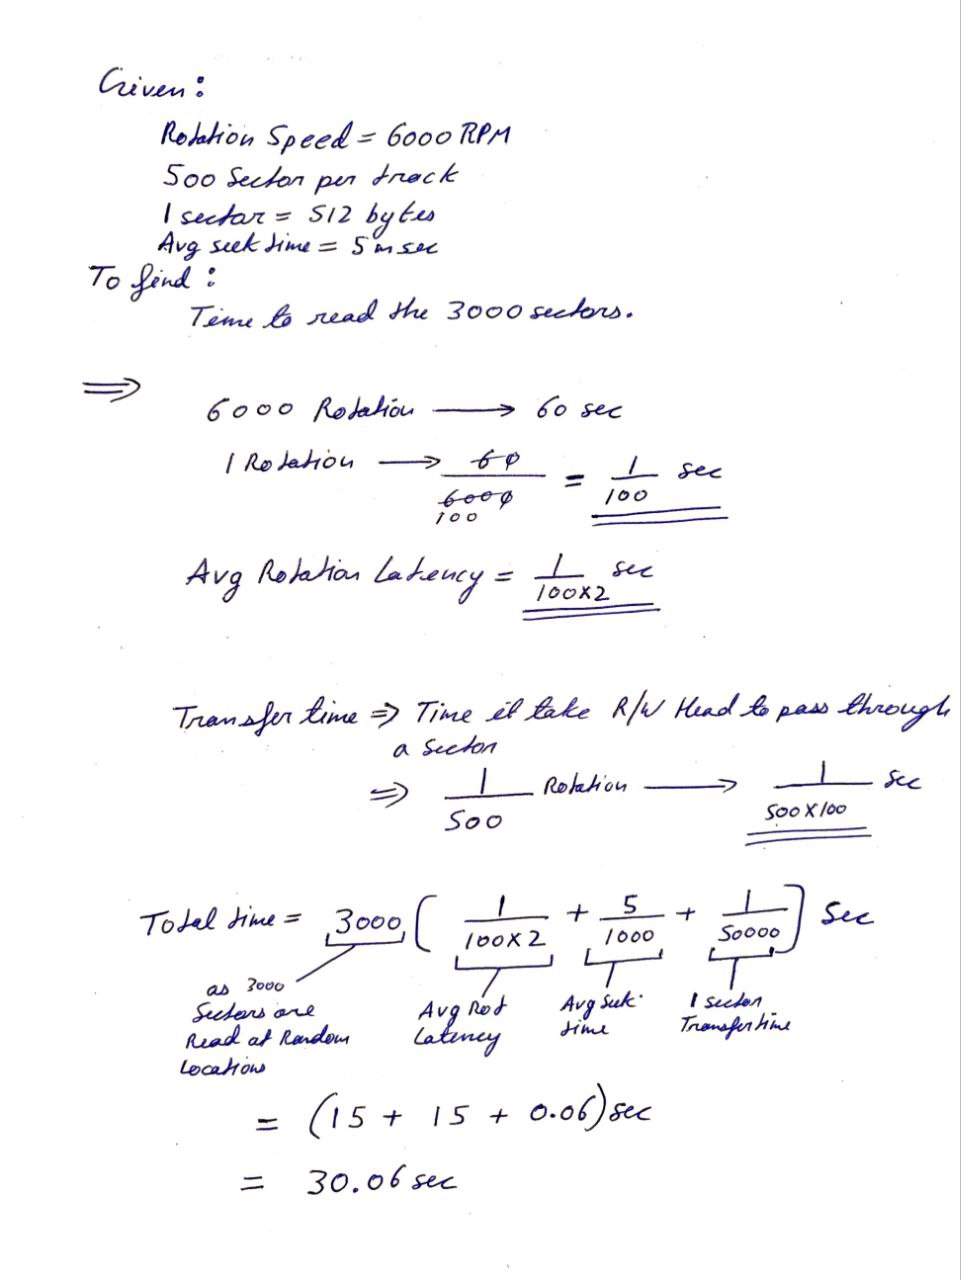 Given :
Rotation Speed = 6000 RPM
500 Sector per track
1 sector = 512 bytes
Avg seek time = 5 m sec
To find :
Time to read the 3000 sectors.
⇒
6000 Rotation → 60 sec
1 Rotation → 60/6000 = 1/100 sec
100
Avg Rotation Latency = 1/100×2 sec
Transfer time ⇒ Time it take R/W Head to pass through
a sector
⇒ 1/500 Rotation → 1/500×100 sec
Total time = 3000 ( 1/100×2 + 5/1000 + 1/50000 ) sec
as 3000
Sectors are
Read at Random
Locations
Avg Rot
Latency
Avg Seek
time
1 sector
Transfer time
= (15 + 15 + 0.06) sec
= 30.06 sec